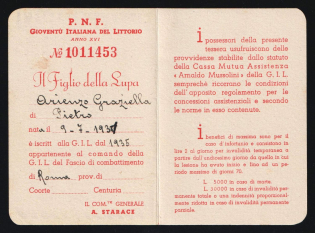 P. N. F.
GIOVENTÙ ITALIANA DEL LITTORIO
ANNO XVI
№ 1011453
Il Figlio della Lupa
Arienzo Graziella
di Pietro
nat a il 9-7-193
è iscritt alla G.I.L. dal 1935
appartenente al comando della
G.I.L. del Fascio di combattimento
di Roma prov. di
Coorte Centuria
IL COM.TE GENERALE
A. STARACE
i possessori della presente
tessera usufruiscono delle
provvidenze stabilite dallo statuto
della Cassa Mutua Assistenza
« Arnaldo Mussolini » della G.I.L.
sempreché ricorrano le condizioni
dell'apposito regolamento per le
concessioni assistenziali e secondo
le norme in esso contenute.
i benefici di massima sono per il caso
d'infortunio e consistono in
lire 5 al giorno per invalidità temporanea a
partire dall'undicesimo giorno da quello in cui
la lesione ha avuto inizio e fino ad un periodo
massimo di giorni 70.
L. 5000 in caso di morte.
L. 30000 in caso di invalidità permanente
totale o una indennità proporzionalmente
ridotta in caso di invalidità permanente
parziale.